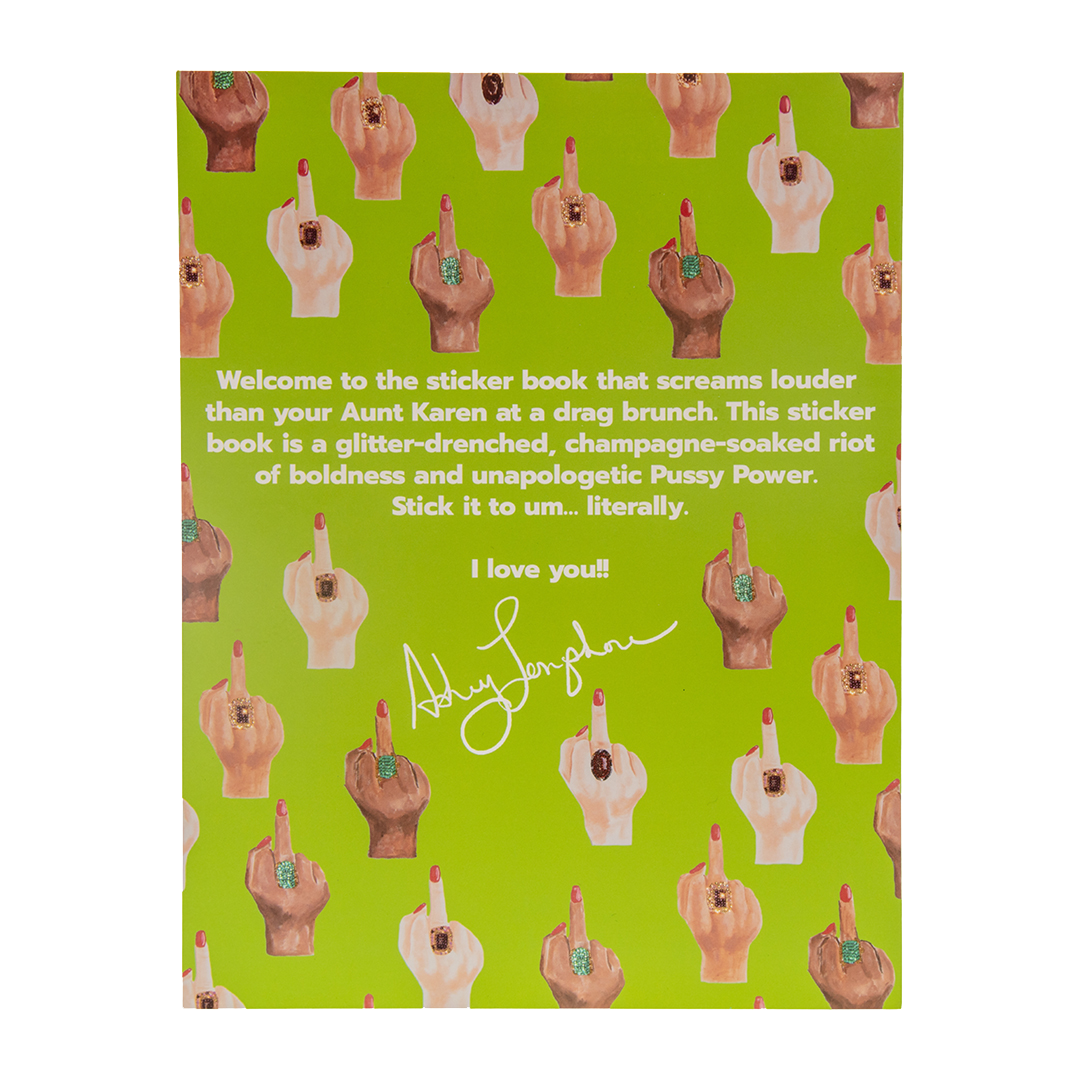 Welcome to the sticker book that screams louder
than your Aunt Karen at a drag brunch. This sticker
book is a glitter-drenched, champagne-soaked riot
of boldness and unapologetic Pussy Power.
Stick it to um... literally.
I love you!!
Ashley Longshore